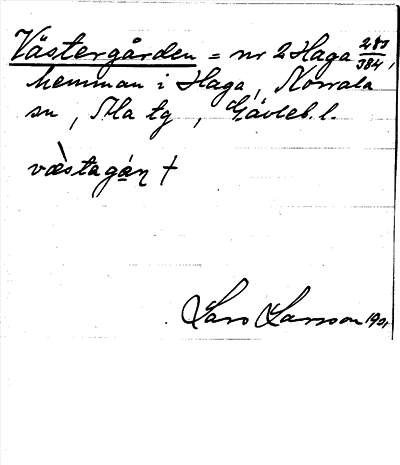 Västergården = nr 2 Haga 280/384,
hemman i Haga, Norrala
sn, Ala tg, Gävleb. l.
væ̀stagán̥ +
Lars Larsson 190